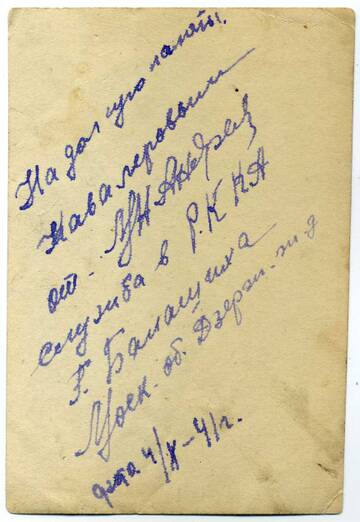 На долгую память
Кавалеровым
от Андрея
служба в Р.К.К.А
г. Балашиха
Моск. об. Дзерж.
дата 4/X-41г.